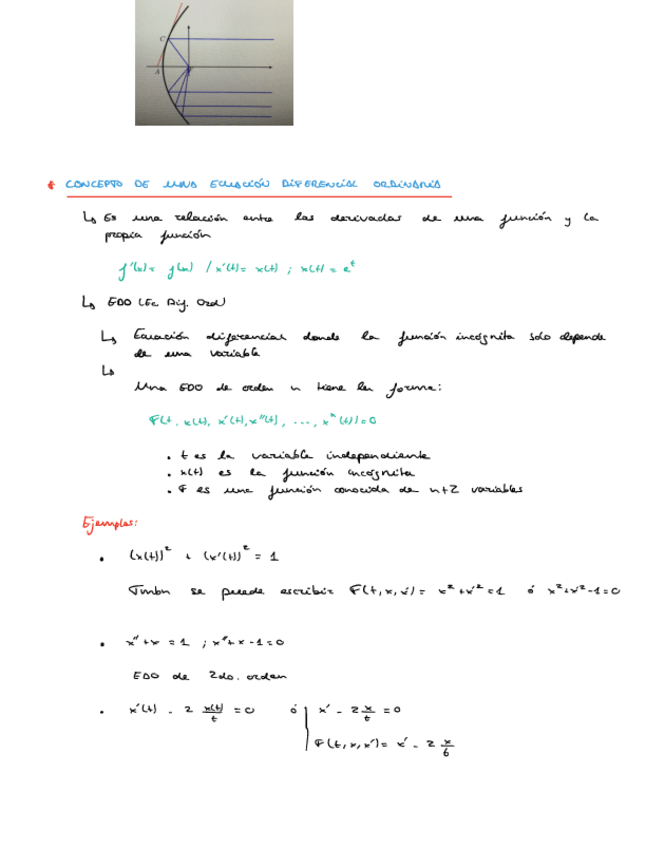 C
A
* CONCEPTO DE UNA ECUACIÓN DIFERENCIAL ORDINARIA
↳ Es una relación entre las derivadas de una función y la
propia función
f'(x) = f(x) / x'(t) = x(t) ; x(t) = e^t
↳ EDO (Ec. Dif. Ord)
↳ Ecuación diferencial donde la función incógnita solo depende
de una variable
↳
Una EDO de orden n tiene la forma:
F(t, x(t), x'(t), x''(t), ..., x^n(t)) = 0
• t es la variable independiente
• x(t) es la función incógnita
• F es una función conocida de n+2 variables
Ejemplos:
• (x(t))^2 + (x'(t))^2 = 1
se puede escribir F(t, x, x') = x^2 + x'^2 = 1 ó x^2 + x'^2 - 1 = 0
• x'' + x = 1 ; x'' + x - 1 = 0
EDO de 2do. orden
• x'(t) - 2 x(t)/t = 0 ó x' - 2 x/t = 0
F(t, x, x') = x' - 2 x/t